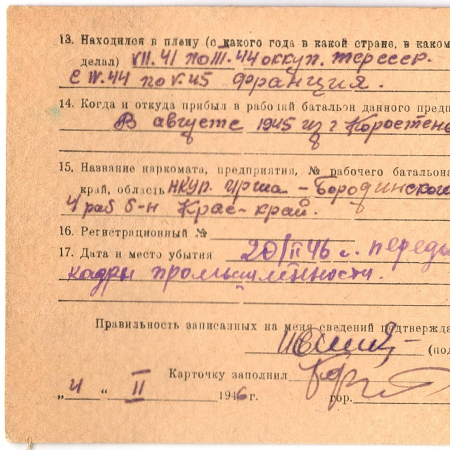 13. Находился в плену (с какого года в какой стране, в каком
делал) VII.41 по III.44 оккуп. террсср.
с IV.44 по V.45 Франция.
14. Когда и откуда прибыл в рабочий батальон данного предп
В августе 1945 из г Коростень
15. Название наркомата, предприятия, № рабочего батальона
край, область НКУП. Ирша – Бородинского
4 раб б-н Крас-край.
16. Регистрационный №
17. Дата и место убытия 20/II 46 г. переда
кадры промышленности.
Правильность записанных на меня сведений подтвержда
(по
Карточку заполнил
„4“ II 1946 г. гор.